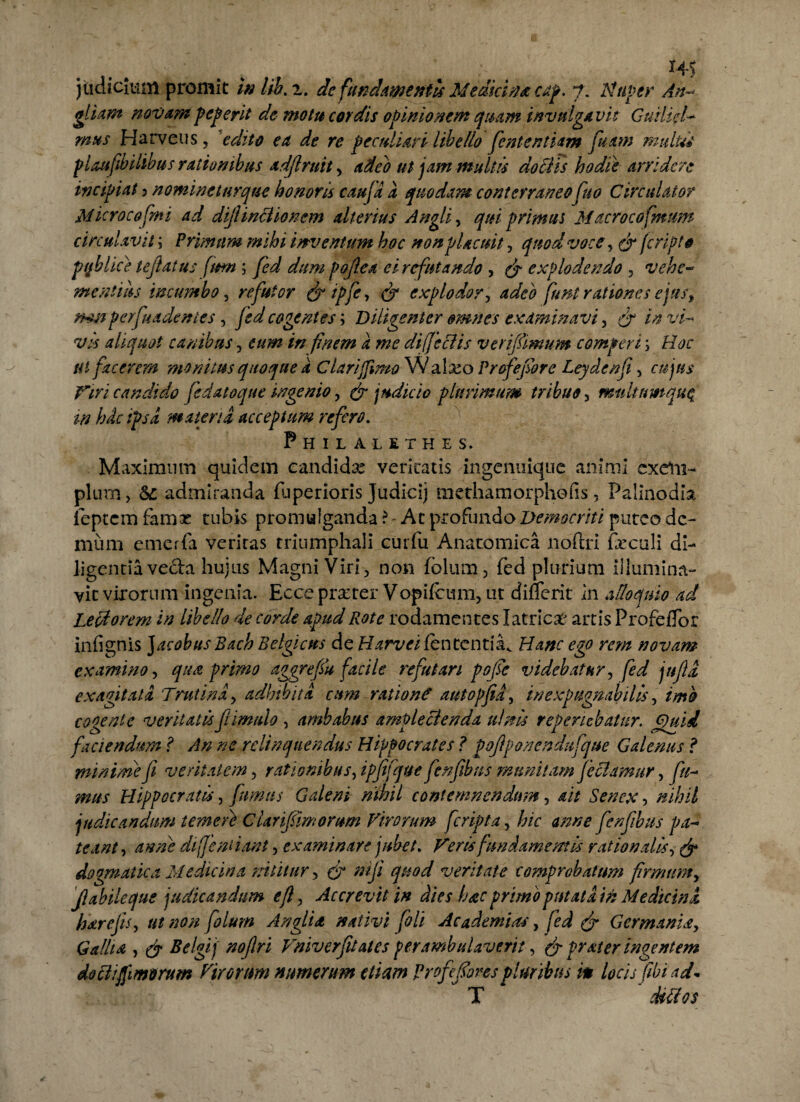 145
judicium promit in lib. 2. de fundamentis Medicinæ cap. 7. Nuper An-
gliam novam peperit de motu cordis opinionem quam invulgavit Guiliel-
mus Harveus, edito ea de re peculiari libello sententiam suam multis
plausibilibus rationibus adstruit, adeo ut jam multis doctis hodie arridere
incipiat, nomineturque honoris causâ à quodam conterraneo suo Circulator
Microcosmi ad distinctionem alterius Angli, qui primus Macrocosmum
circulavit; Primum mihi inventum hoc non placuit, quod voce, & scripto
publicè testatus sum; sed dum postea ei refutando, & explodendo, vehe-
mentius incumbo, refutor & ipse, & explodor, adeò sunt rationes ejus,
non persuadentes, sed cogentes; Diligenter omnes examinavi, & in vi-
vis aliquot canibus, eum in finem à me dissectis verissimum comperi; Hoc
ut facerem monitus quoque à Clarissimo Walæo Professore Leydensi, cujus
Viri candido sedatoque ingenio, & judicio plurimum tribuo, multumque
in hâc ipsâ materiâ acceptum refero.
PHILALETHES.
Maximum quidem candidæ veritatis ingenuique animi exem-
plum, & admiranda superioris Judicij methamorphosis, Palinodia
septem famæ tubis promulganda? - At profundo Democriti puteo de-
mùm emersa veritas triumphali cursu Anatomicâ nostri sæculi di-
ligentiâ vecta hujus Magni Viri, non solum, sed plurium illumina-
vit virorum ingenia. Ecce præter Vopiscum, ut disserit in alloquio ad
Lectorem in libello de corde apud Rote rodamentes Iatricæ artis Professor
insignis Jacobus Bach Belgicus de Harvei sententiâ. Hanc ego rem novam
examino, qua primo aggressu facile refutari posse videbatur, sed justâ
exagitatâ Trutinâ, adhibitâ cum ratione autopsiâ, inexpugnabilis, imò
cogente veritatis stimulo, ambabus amplectenda ulnis reperiebatur. Quid
faciendum? An ne relinquendus Hippocrates? postponendusque Galenus?
minimè si veritatem, rationibus, ipsisque sensibus munitam sectamur, su-
mus Hippocratis, sumus Galeni nihil contemnendum, ait Senex, nihil
judicandum temerè Clarissimorum Virorum scripta, hic anne sensibus pa-
teant, anne dissentiant, examinare jubet. Veris fundamentis rationalis, &
dogmatica Medicina nititur, & nisi quod veritate comprobatum firmum,
stabileque judicandum est, Accrevit in dies hæc primò putata in Medicinâ
hæresis, ut non solum Angliæ nativi soli Academias, sed & Germaniæ,
Galliæ, & Belgij nostri Vniversitates perambulaverit, & præter ingentem
doctissimorum Virorum numerum etiam Professores pluribus in locis sibi ad-
T dictos